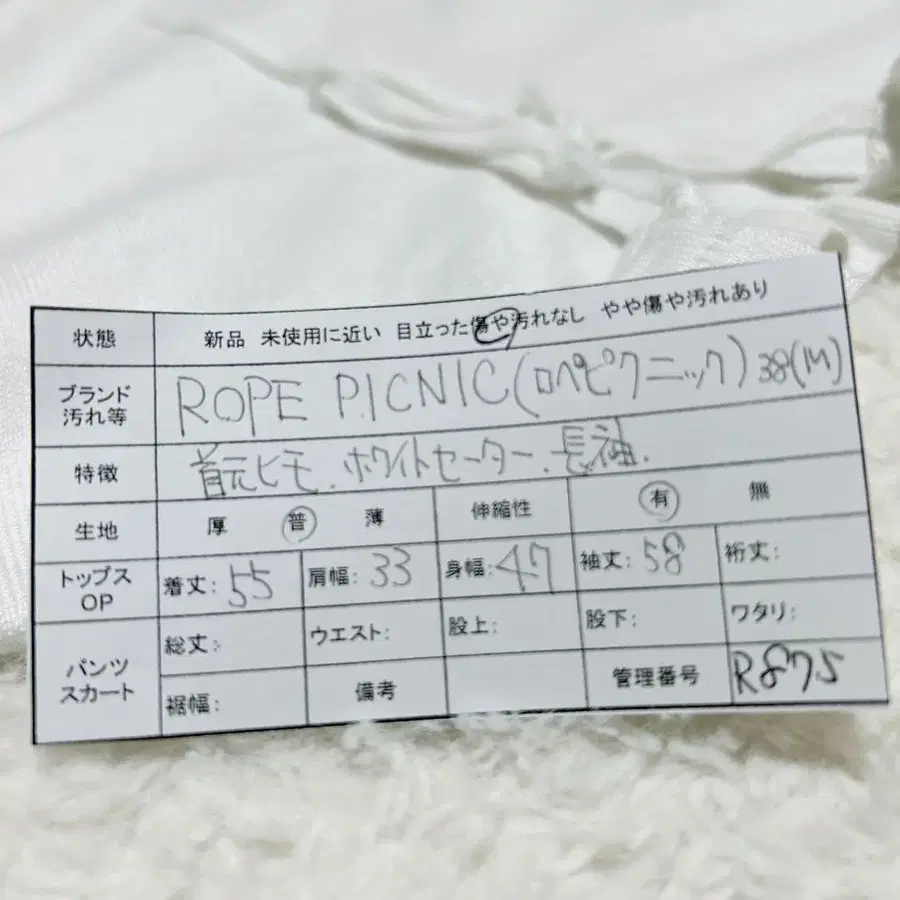 状態 新品 未使用に近い 目立った傷や汚れなし やや傷や汚れあり
ブランド
汚れ等
ROPE PICNIC(ロペピクニック)38(M)
特徴 首元ヒモ.ホワイトセーター.長袖.
生地 厚 普 薄 伸縮性 有 無
トップス
OP
着丈:55 肩幅:33 身幅:47 袖丈:58 裄丈:
パンツ
スカート
総丈: ウエスト: 股上: 股下: ワタリ:
裾幅: 備考 管理番号 R875